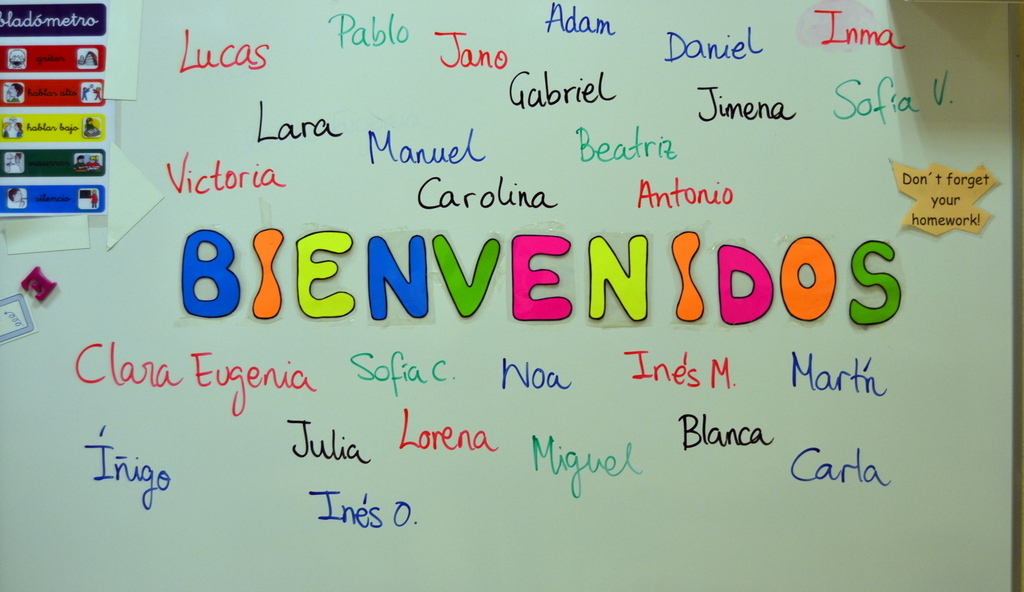 bladómetro
gritar
hablar alto
hablar bajo
susurrar
silencio
Lucas
Pablo
Jano
Adam
Daniel
Inma
Gabriel
Jimena
Sofía V.
Lara
Manuel
Beatriz
Victoria
Carolina
Antonio
Don´t forget
your
homework!
BIENVENIDOS
Clara Eugenia
Sofía C.
Noa
Inés M.
Martín
Íñigo
Julia
Lorena
Miguel
Blanca
Carla
Inés O.